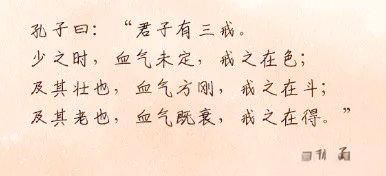 孔子曰：“君子有三戒。
少之时，血气未定，戒之在色；
及其壮也，血气方刚，戒之在斗；
及其老也，血气既衰，戒之在得。”